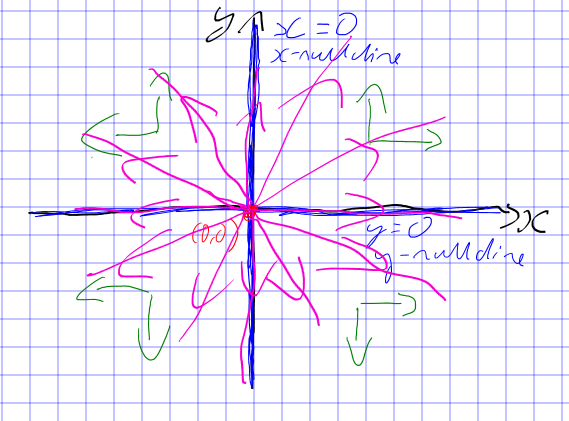 y
x = 0
x-nullcline
x
(0,0)
y = 0
y-nullcline